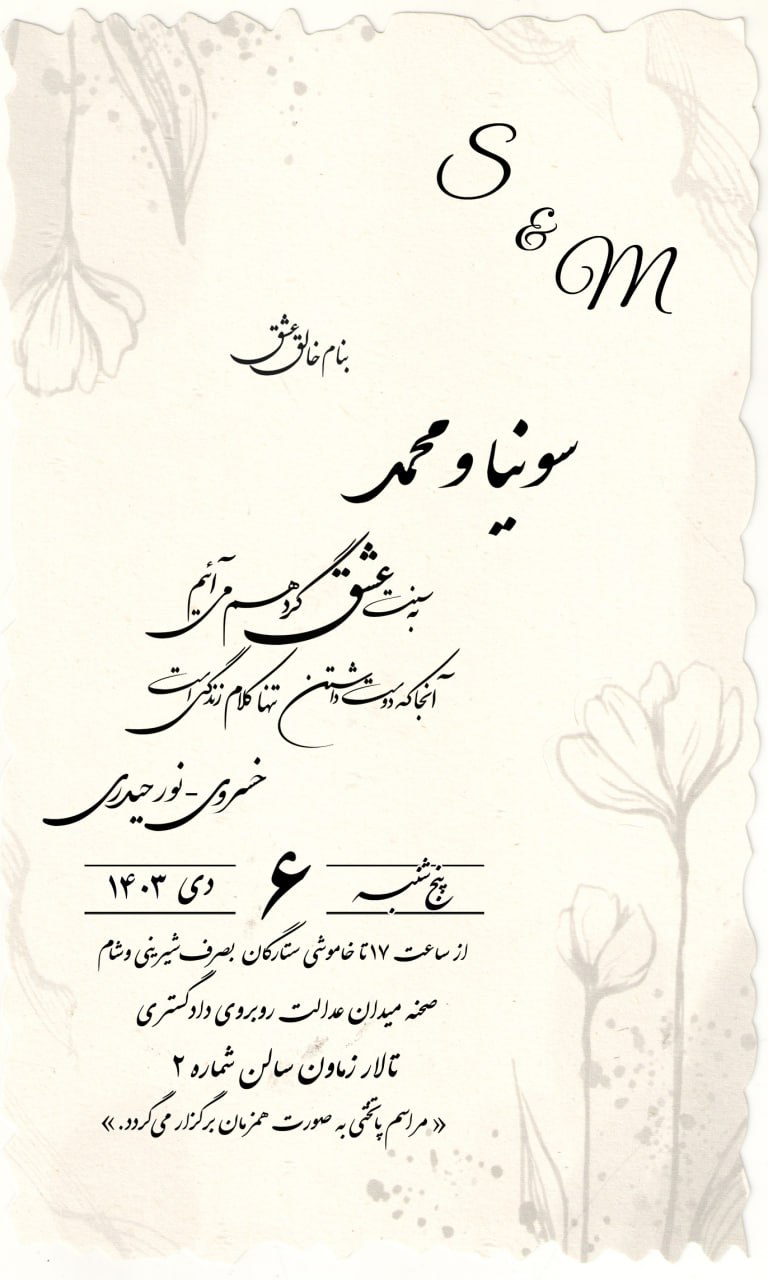 S
&
M
بنام خالق عشق
سونیا و محمد
به سنت عشق گرد هم می آئیم
آنجا که دوست داشتن تنها کلام زندگی است
خسروی - نورحیدری
پنج شنبه ۶ دی ۱۴۰۳
از ساعت ۱۷ تا خاموشی ستارگان بصرف شیرینی و شام
صحنه میدان عدالت روبروی دادگستری
تالار زماون سالن شماره ۲
« مراسم پاتختی به صورت همزمان برگزار می گردد. »